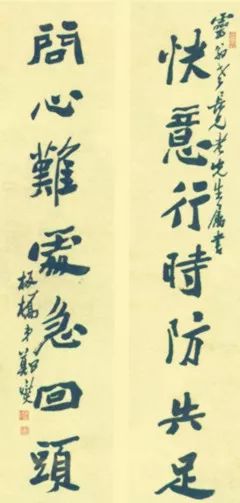 快意行時防失足
長兄老先生屬書
問心難處急回頭
板橋弟鄭燮